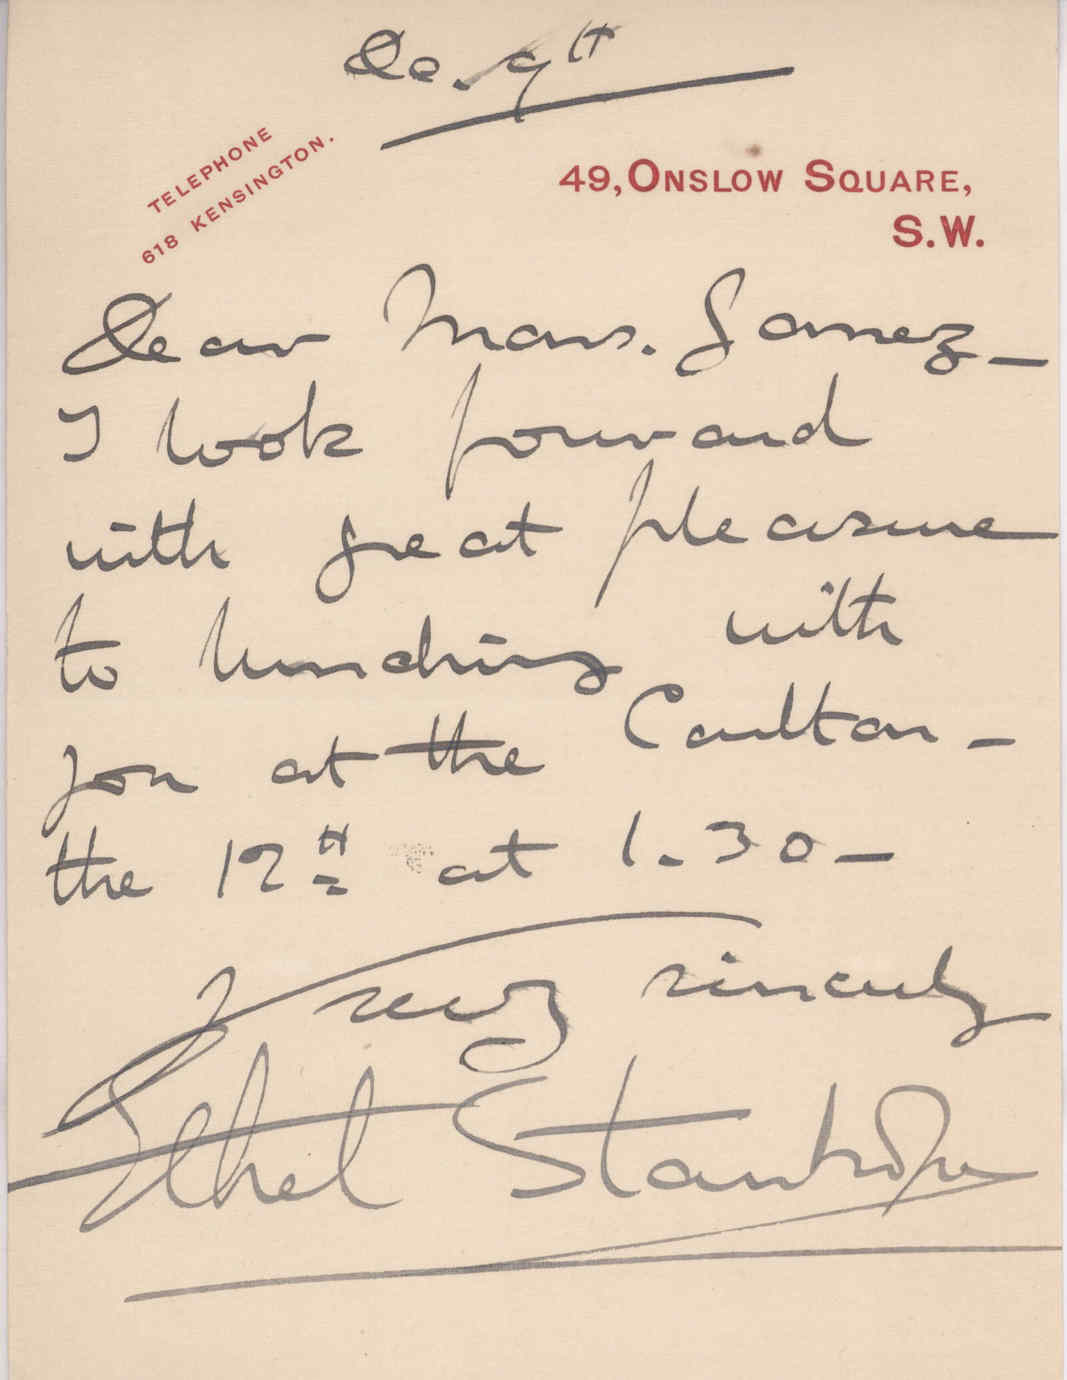 De. 9th
TELEPHONE
618 KENSINGTON.
49, ONSLOW SQUARE,
S.W.
Dear Mons. Gomez —
I look forward
with great pleasure
to lunching with
you at the Carlton —
the 12th at 1.30 —
Yours very sincerely
Ethel Stanhope